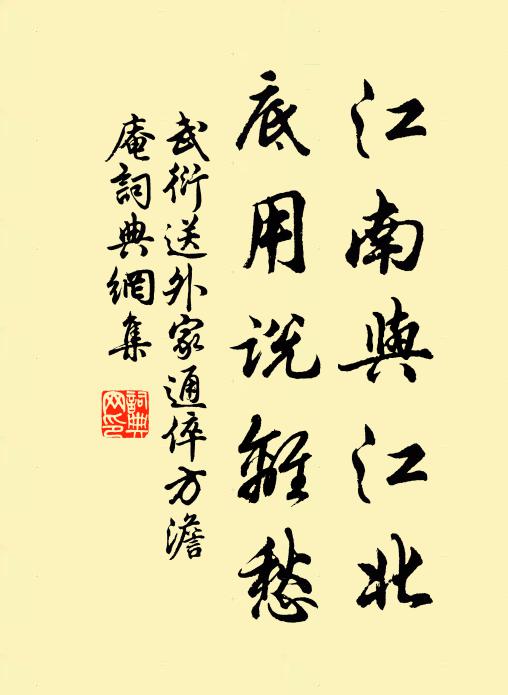 江南與江北
底用説離愁
武衍送外家通倅方澹
庵詞典網集
詞典
网印